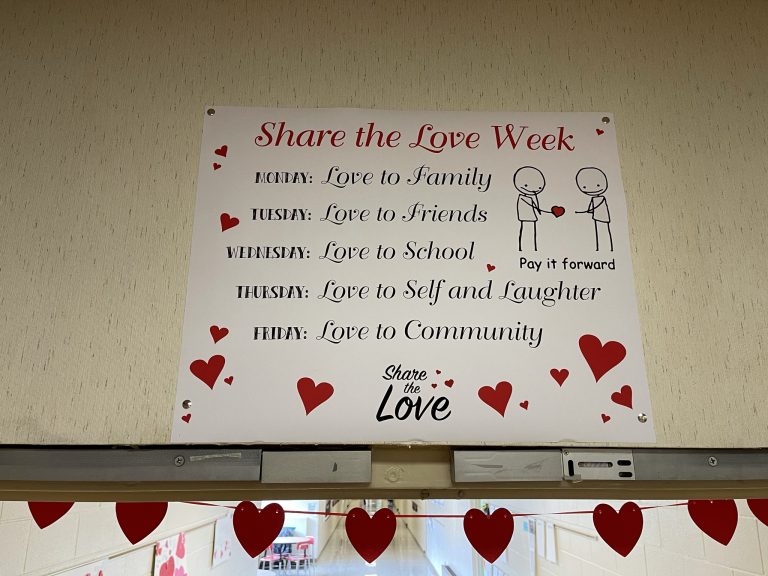 Share the Love Week
MONDAY: Love to Family
TUESDAY: Love to Friends
WEDNESDAY: Love to School
THURSDAY: Love to Self and Laughter
FRIDAY: Love to Community
Pay it forward
Share
the
Love